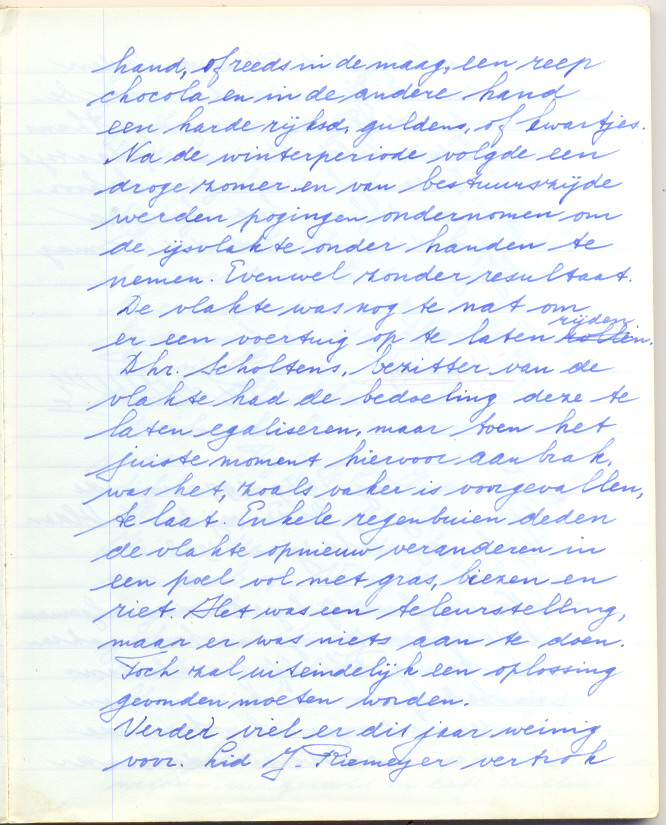 hand, of reeds in de maag, een reep
chocola en in de andere hand
een harde rijksd, guldens, of kwartjes.
Na de winterperiode volgde een
droge zomer en van bestuurszijde
werden pogingen ondernomen om
de ijsvlakte onder handen te
nemen. Evenwel zonder resultaat.
De vlakte was nog te nat om
er een voertuig op te laten rijden.
Dhr. Scholtens, bezitter van de
vlakte had de bedoeling deze te
laten egaliseren, maar toen het
juiste moment hiervoor aanbrak,
was het, zoals vaker is voorgevallen,
te laat. Enkele regenbuien deden
de vlakte opnieuw veranderen in
een poel vol met gras, biezen en
riet. Het was een teleurstelling,
maar er was niets aan te doen.
Toch zal uiteindelijk een oplossing
gevonden moeten worden.
Verder viel er dit jaar weinig
voor. Lid J. Riemeyer vertrok